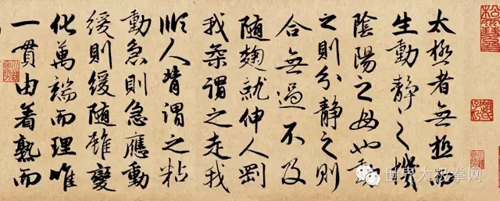 太極者無極而
生動靜之機
陰陽之母也動
之則分靜之則
合無過不及
隨麯就伸人剛
我柔謂之走我
順人背謂之粘
動急則急應動
緩則緩隨雖變
化萬端而理唯
一貫由着熟而
世界太极拳网